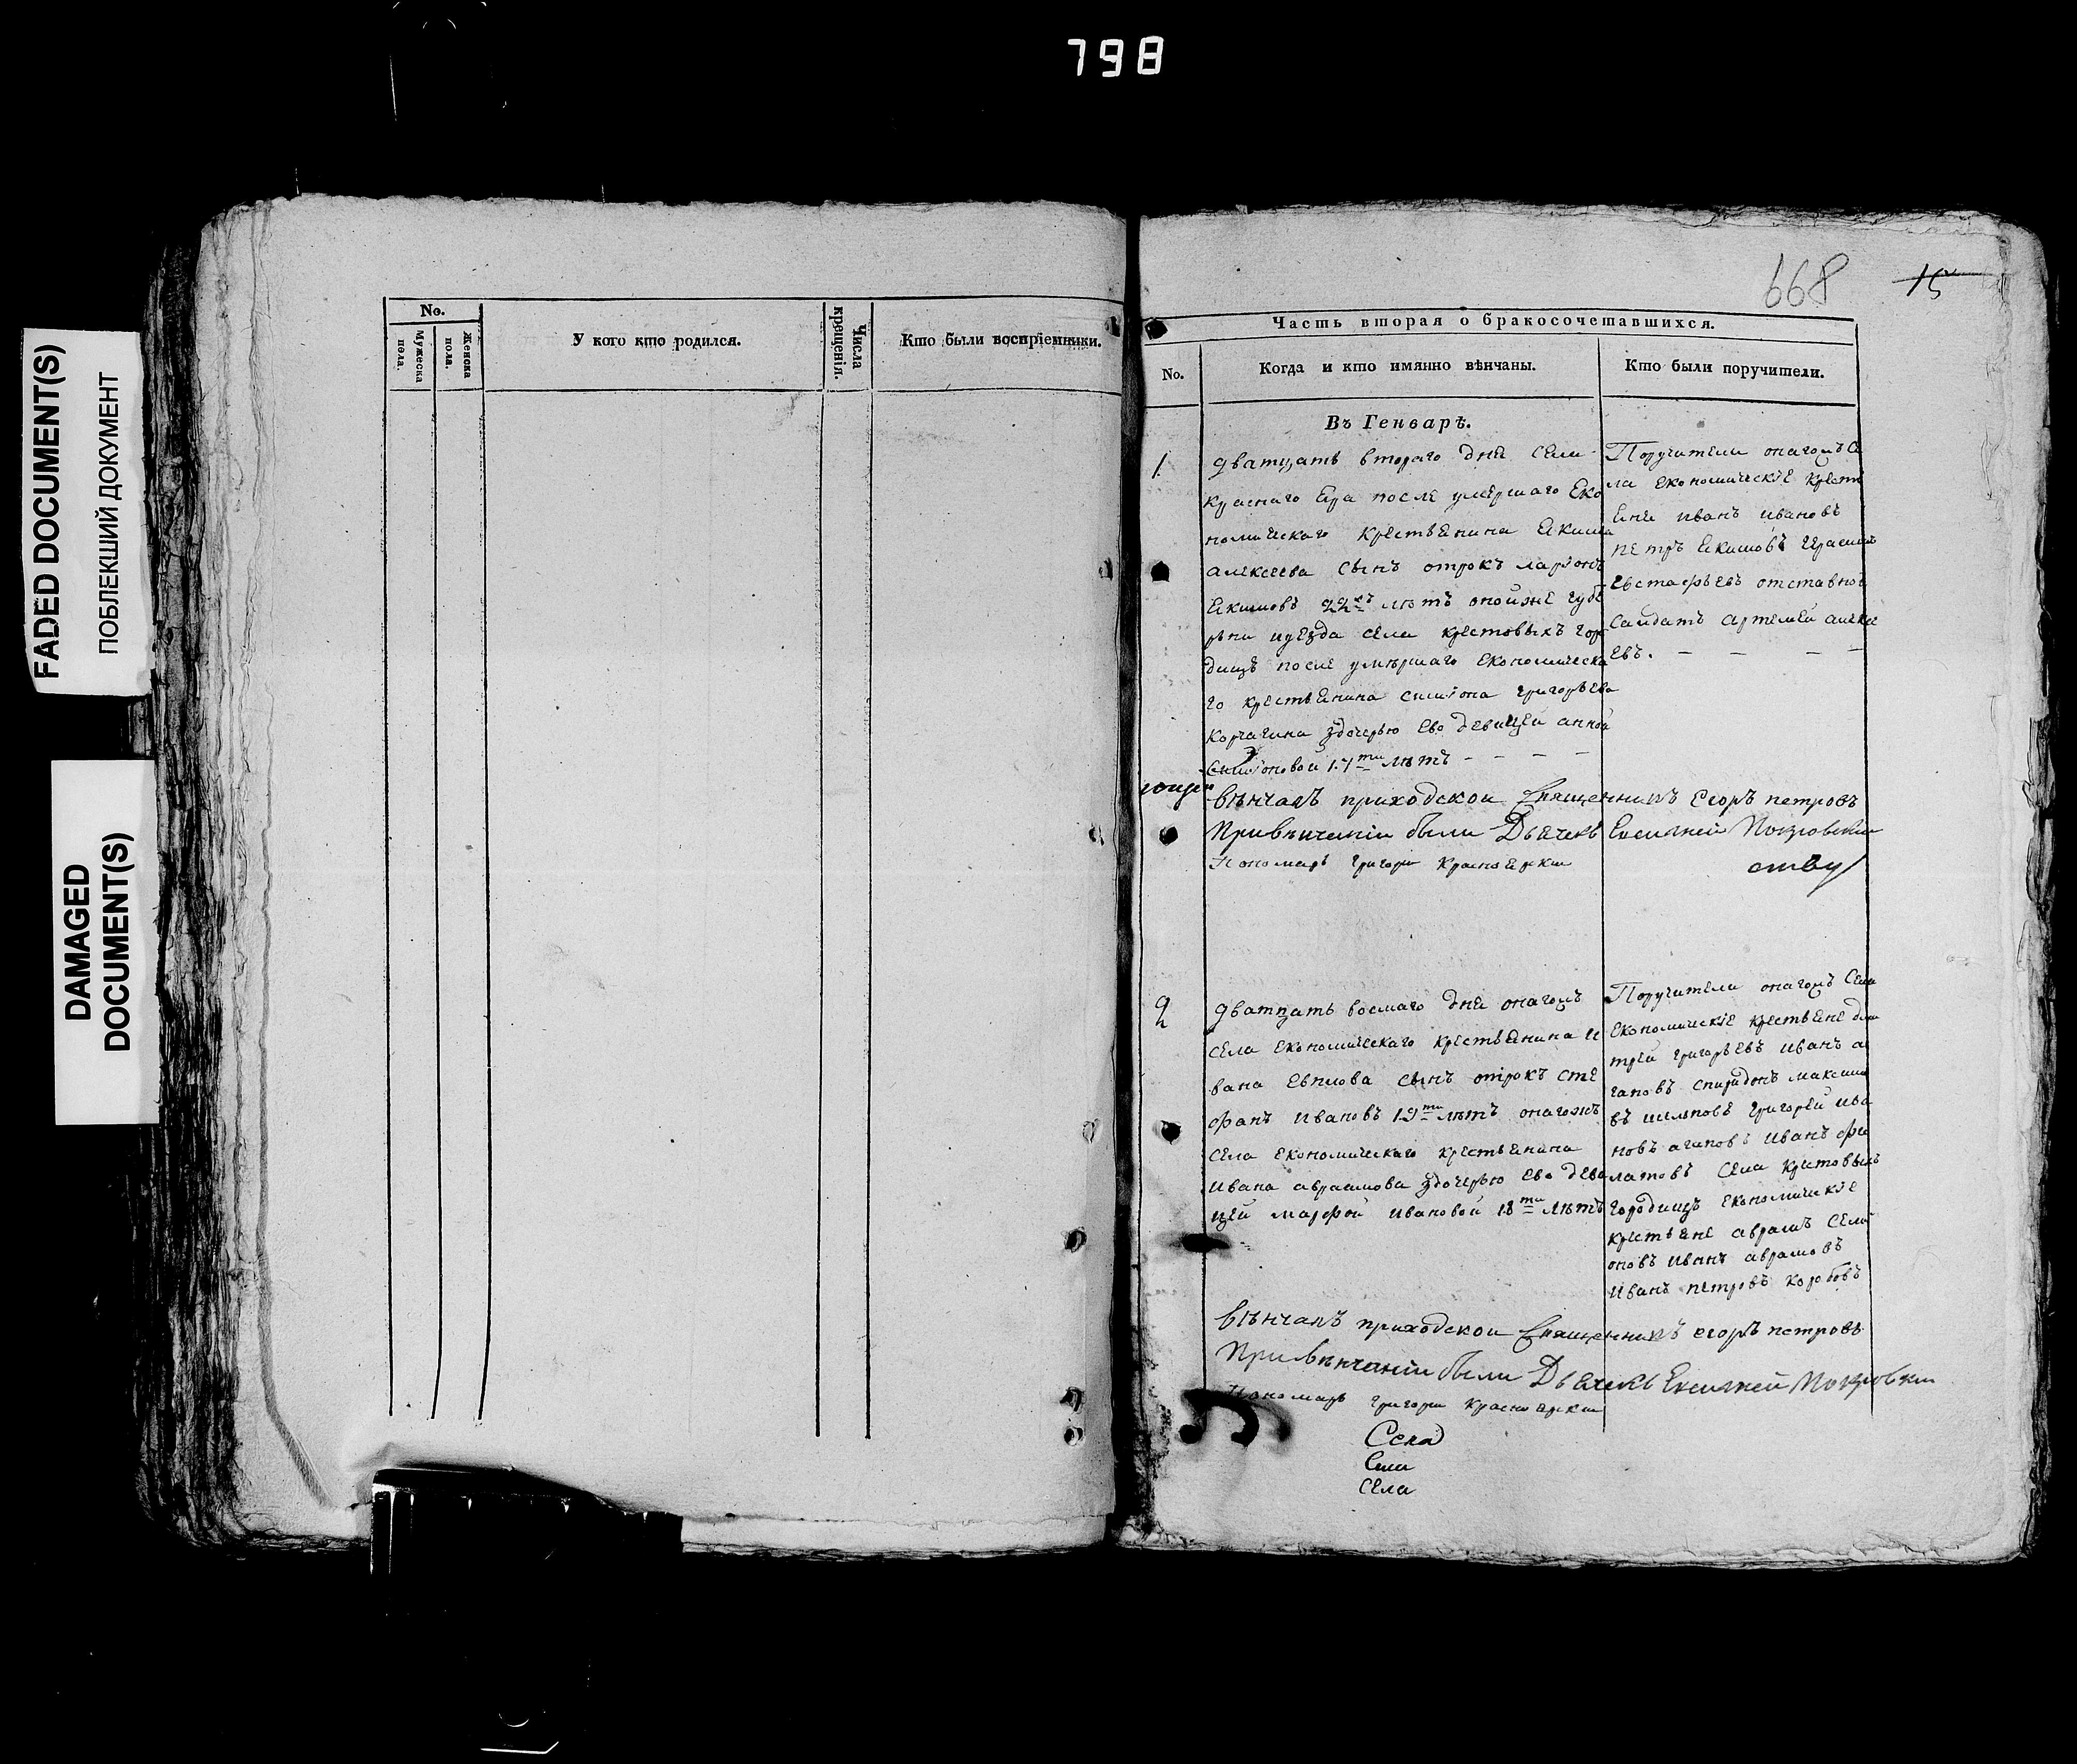 798
FADED DOCUMENT(S)
ПОБЛЕКШИЙ ДОКУМЕНТ
DAMAGED
DOCUMENT(S)
No.
Мужеска пола.
Женска пола.
У кого кто родился.
Числа крещенія.
Кто были воспріемники.
668 15
Часть вторая о бракосочетавшихся.
No.
Когда и кто имянно вѣнчаны.
Кто были поручители.
Въ Генварѣ.
1.
дватцать втораго дня села
краснаго Яра после умершаго Еко
номическаго крестьянина Якима
алексеева сынъ отрокъ ларіонъ
Якимовъ 22хъ лѣтъ онойже губе
рни иуезда села крестовыхъ горо
дищъ после умѣршаго Економическа
го крестьянина симіона григорьева
корчагина здочерью ево девицей анной
симіоновой 17ти лѣтъ - - - -
Поручители онагожъ се
ла економическіе крестя
яне иванъ ивановъ
петръ Якимовъ герасимъ
евстафьевъ отставной
салдатъ артемей алекс
евъ. - - - -
вѣнчалъ приходской Священникъ егоръ петровъ
Привенчаніи были Дьячекъ Евсигней Покровский
Пономарь григори красноярски
ству
2
дватцать восмаго дня онагожъ
села економическаго крестьянина и
вана евплова сынъ отрокъ сте
фанъ ивановъ 19ти лѣтъ онагожъ
села економическаго крестьянина
ивана авраамова здочерью ево деви
цей марфой ивановой 18ти лѣтъ
Поручители онагожъ села
економическіе крестьяне дми
трей григорьевъ иванъ а
гаповъ спиридонъ максимо
въ григорей ива
новъ агаповъ иванъ фи
латовъ села крестовыхъ
городищъ економическіе
крестьяне аврамъ семи
оновъ иванъ аврамовъ
иванъ петровъ коробовъ
вѣнчалъ приходской Священникъ егоръ петровъ
Привѣнчаніи были Дьячекъ Евсигней Покровски
Пономарь григори красноярски
Села
Села
Села